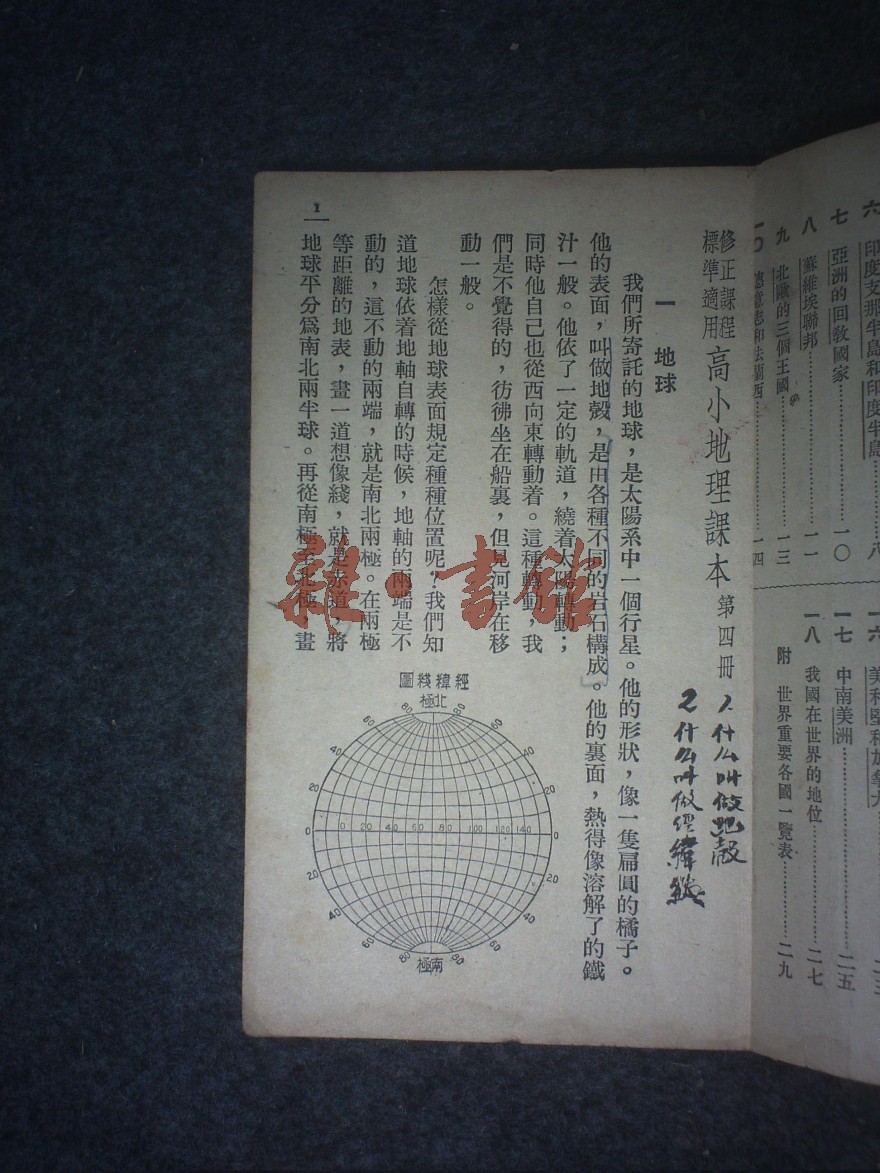 六 印度支那半島和印度半島……八
七 亞洲的回教國家……一〇
八 蘇維埃聯邦……一一
九 北歐的三個王國……一三
一〇 德意志和法蘭西……一四
一六 美利堅和加拿大
一七 中南美洲……二五
一八 我國在世界的地位……二七
附 世界重要各國一覽表……二九
修正課程
標準適用
高小地理課本 第四冊
1. 什么叫做地殼
2 什么叫做經緯綫
一 地球
我們所寄託的地球，是太陽系中一個行星。他的形狀，像一隻扁圓的橘子。
他的表面，叫做地殼，是由各種不同的岩石構成。他的裏面，熱得像溶解了的鐵
汁一般。他依了一定的軌道，繞着太陽轉動；
同時他自己也從西向東轉動着。這種轉動，我
們是不覺得的，彷彿坐在船裏，但見河岸在移
動一般。
怎樣從地球表面規定種種位置呢？我們知
道地球依着地軸自轉的時候，地軸的兩端是不
動的，這不動的兩端，就是南北兩極。在兩極
等距離的地表，畫一道想像綫，就是赤道，將
地球平分爲南北兩半球。再從南極至北極，畫
1
圖綫緯經
極北
80 80
60 60
40 40
20 20
0 0 20 40 60 80 100 120 140 0
20 20
40 40
60 60
80 80
極南
雜·書館